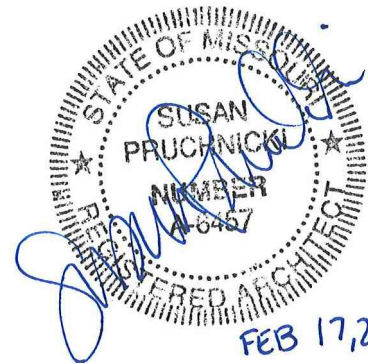 STATE OF MISSOURI
SUSAN
PRUCHNICKI
NUMBER
A-6457
REGISTERED ARCHITECT
FEB 17, 2